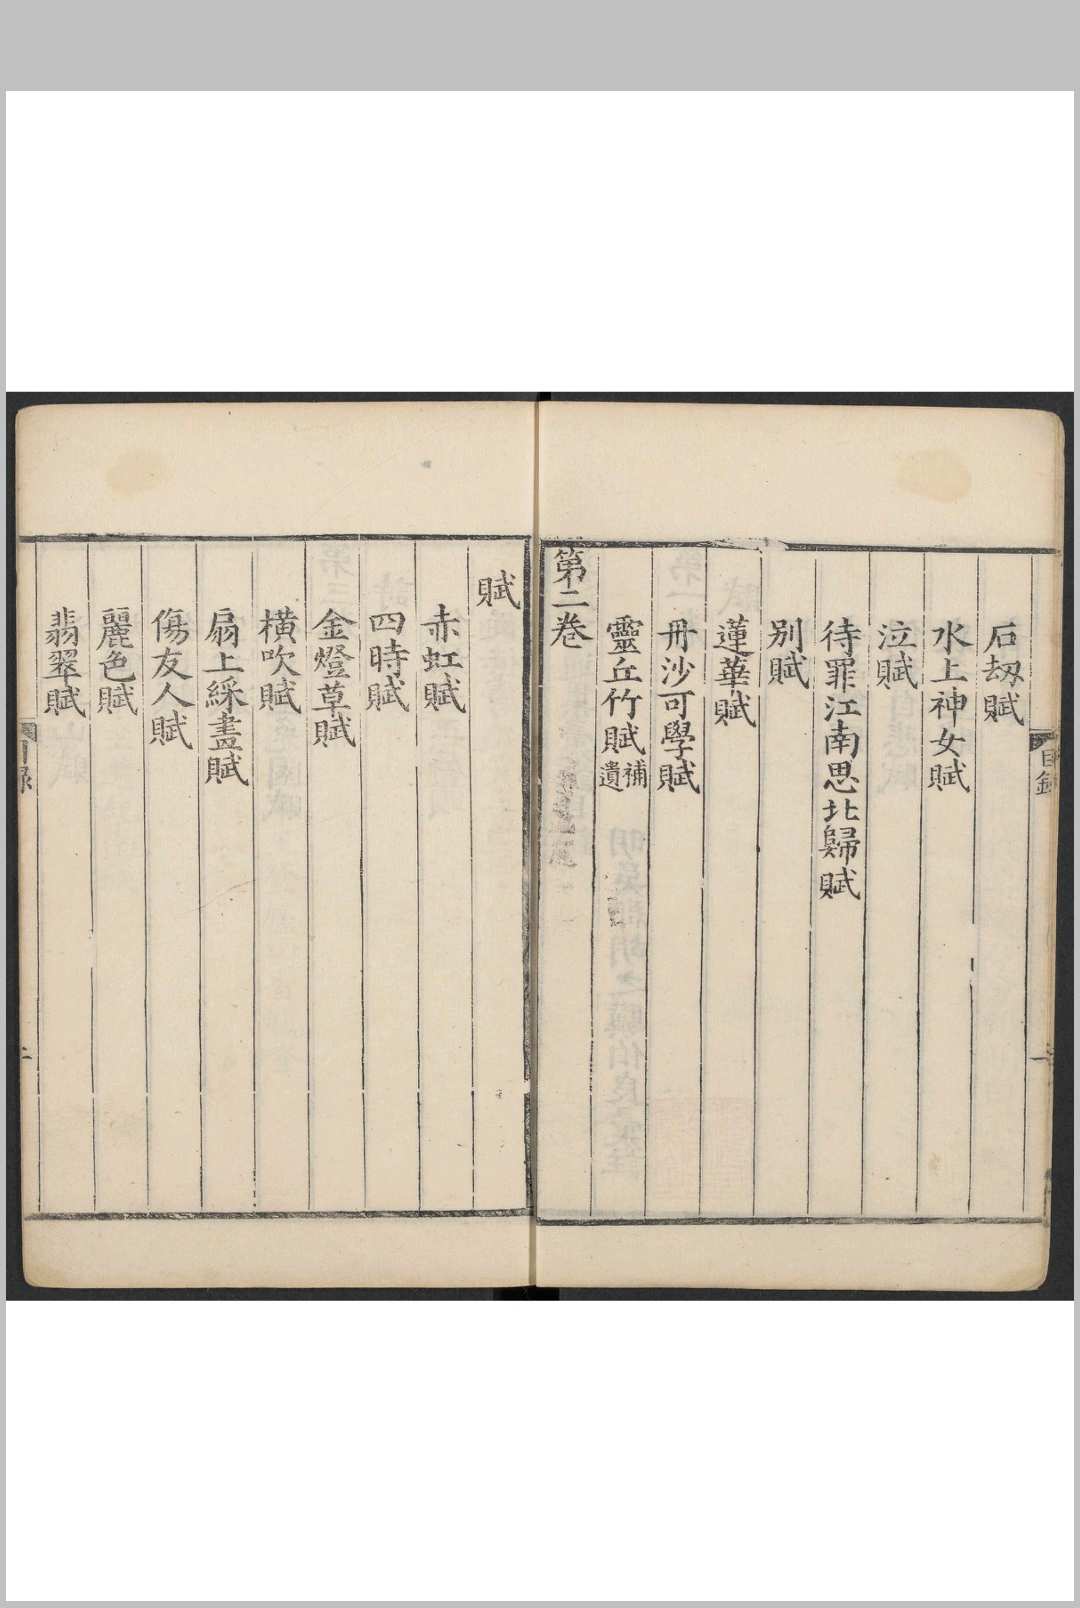 目錄
石刧賦
水上神女賦
泣賦
待罪江南思北歸賦
别賦
蓮華賦
丹沙可學賦
靈丘竹賦補遺
第二卷
賦
赤虹賦
四時賦
金燈草賦
横吹賦
扇上綵畫賦
傷友人賦
麗色賦
翡翠賦
目錄